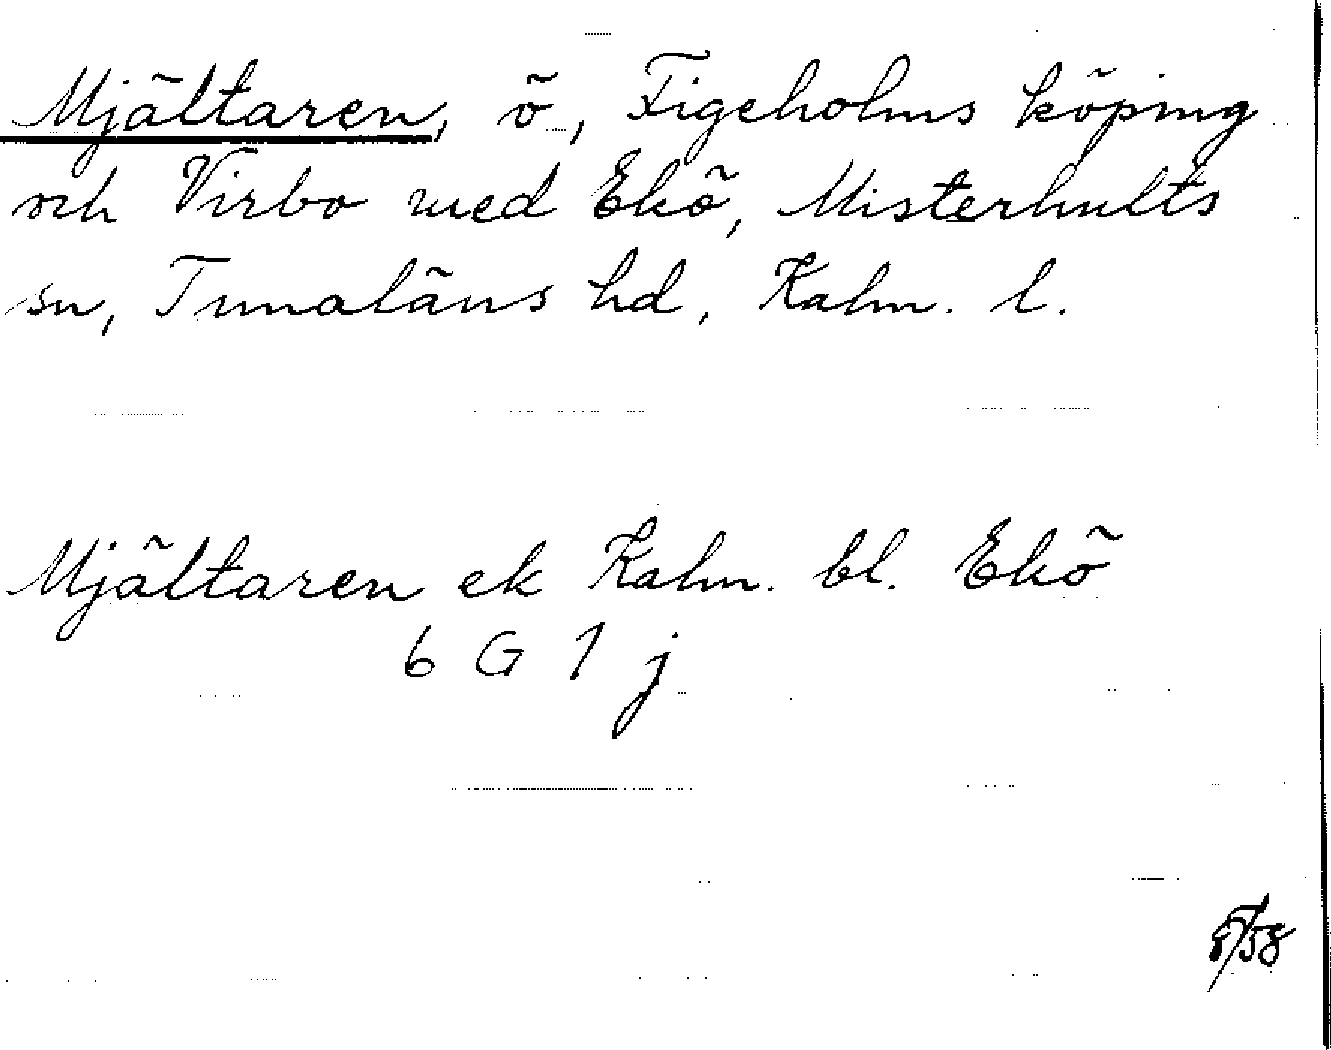 Mjältaren, ö, Figeholms köping
och Virbo med Ekö, Misterhults
sn, Tunaläns hd, Kalm. l.
Mjältaren ek Kalm. bl. Ekö
6 G 1 j